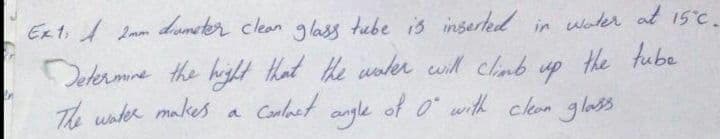 Ex 1: A 2mm diameter clean glass tube is inserted in water at 15°C.
Determine the hight that the water will climb up the tube
The water makes a Contact angle of 0° with clean glass